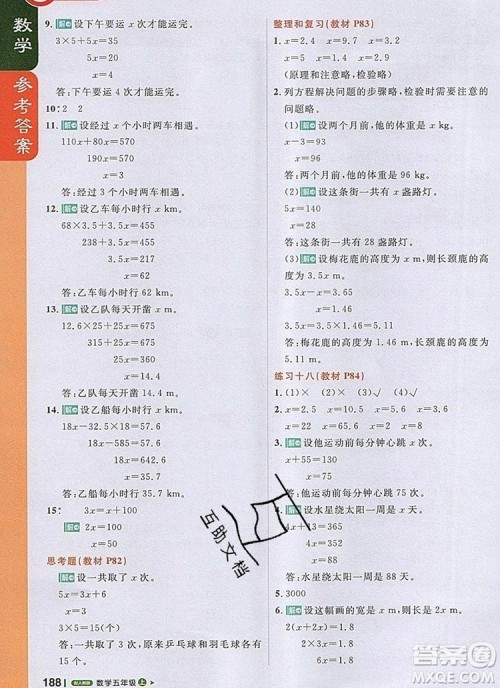 数学
参考答案
9. 解 设下午要运 x 次才能运完。
3×5+5x=35
5x=20
x=4
答:下午要运 4 次才能运完。
10. 2 2
11. 解 设经过 x 个小时两车相遇。
110x+80x=570
190x=570
x=3
答:经过 3 个小时两车相遇。
12. 解 设乙车每小时行 x km。
68×3.5+3.5x=455
238+3.5x=455
3.5x=217
x=62
答:乙车每小时行 62 km。
13. 解 设乙队每天开凿 x m。
12.6×25+25x=675
315+25x=675
25x=360
x=14.4
答:乙队每天开凿 14.4 m。
14. 解 设乙船每小时行 x km。
18x-32.5×18=57.6
18x-585=57.6
18x=642.6
x=35.7
答:乙船每小时行 35.7 km。
15. 解 x+x+10x+10x=1100
22x=1100
x=50
思考题(教材 P82)
解 设一共取了 x 次。
5x=3x+6
x=3
5x=5×3=15(个)
3x+6=3×3+6=15(个)
答:一共取了 3 次。原来乒乓球和羽毛球各有 15 个。
188 配人教版 数学五年级 上
整理和复习(教材 P83)
1. x=2.4 x=9.8 x=3.2
x=0.4 x=19 x=2
(原理和注意略,检验略)
2. 列方程解决问题的步骤略,可能需要注意的问题略。
(1) 解 设两个月前,他的体重是 x kg。
x-3=90
x=93
答:两个月前,他的体重是 93 kg。
(2) 解 设这条街一共有 x 盏路灯。
3x=84
x=28
答:这条街一共有 28 盏路灯。
(3) 解 设梅花鹿的高度为 x m,长颈鹿的高度为 3.5x m。
3.5x-x=3.65
x=1.46
3.5x=5.11
答:梅花鹿的高度为 1.46 m,长颈鹿的高度为 5.11 m。
练习十八(教材 P84)
1. (1)× (2)√ (3)√ (4)√
2. x=0.9 x=17 x=84
x=3.6 x=10.8 x=58
3. 解 设他运动前每分钟心跳 x 次。
x+55=130
x=75
答:他运动前每分钟心跳 75 次。
4. 解 设水星绕太阳一周是 x 天。
4x+13=365
x=88
答:水星绕太阳一周是 88 天。
5. 3000
6. 解 设这幅画的宽是 x m,长是 2x m。
互助文档
答案圈
MXQE.COM